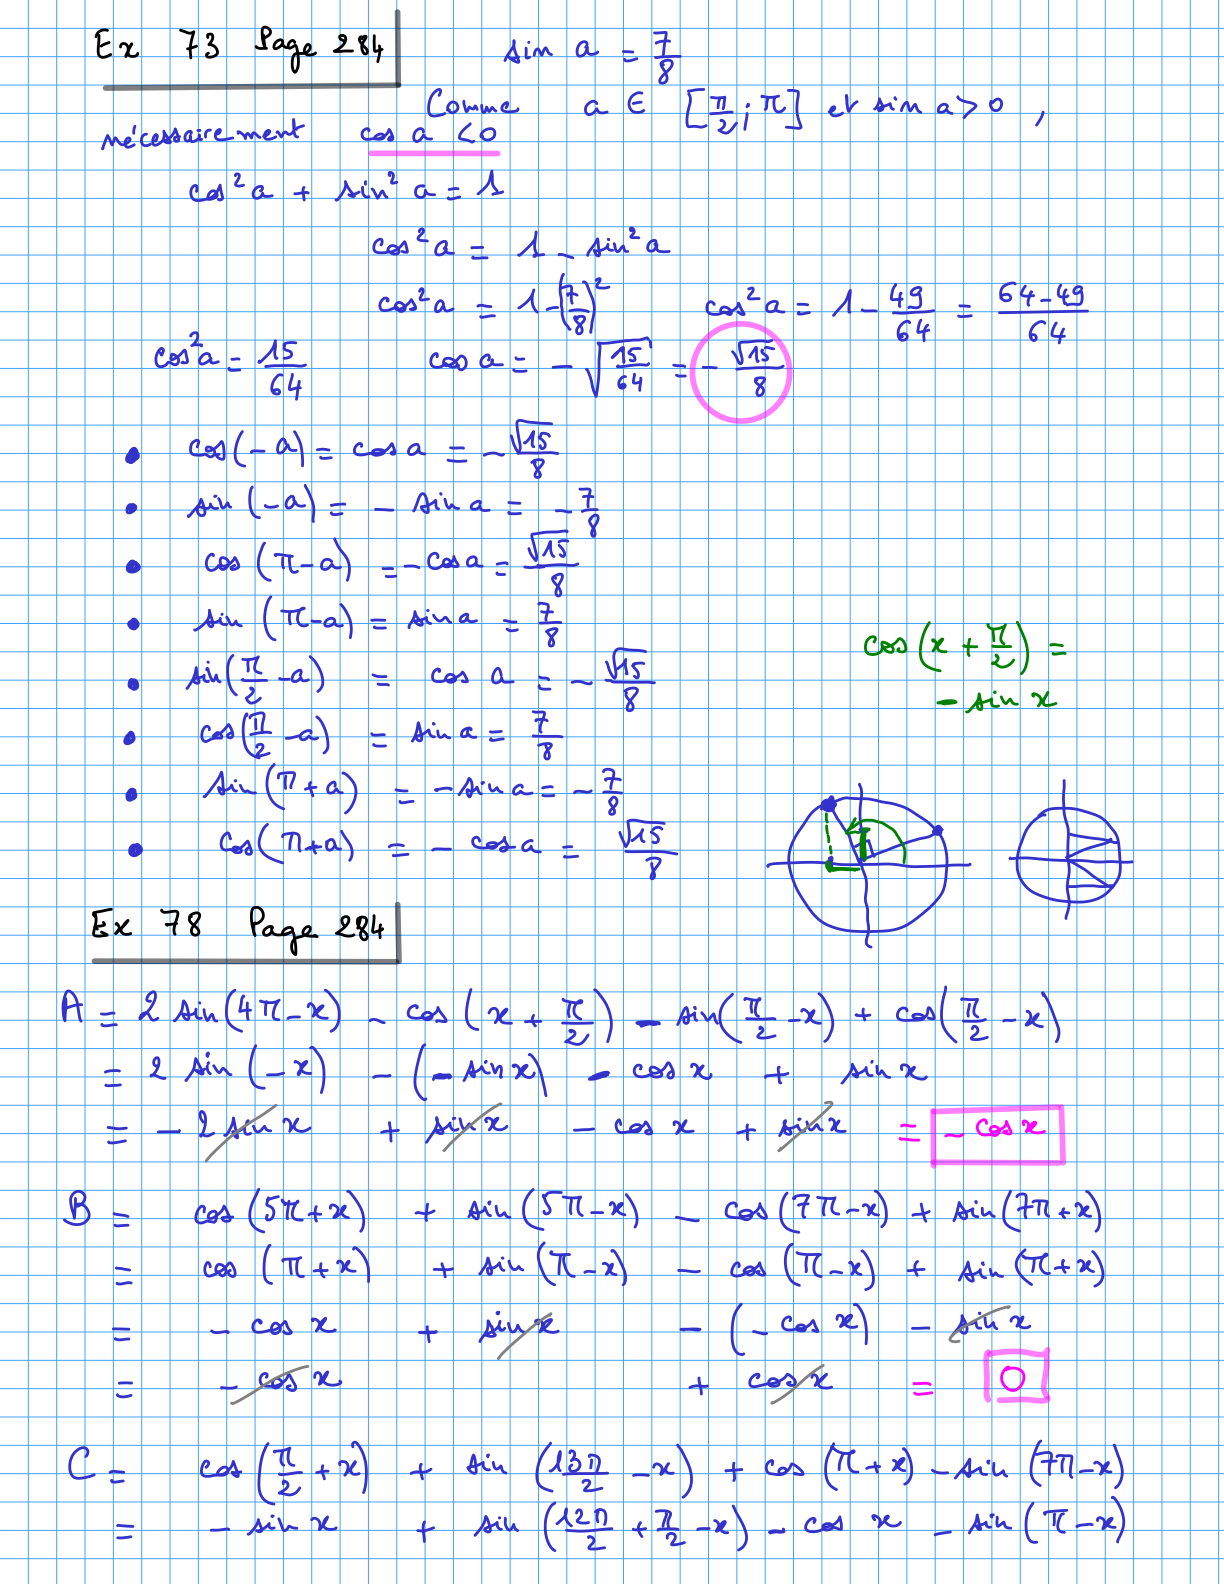 Ex 73 Page 284
sin a = 7/8
Comme a ∈ [π/2 ; π] et sin a > 0 ,
nécessairement cos a < 0
cos² a + sin² a = 1
cos² a = 1 - sin² a
cos² a = 1 - (7/8)² cos² a = 1 - 49/64 = (64-49)/64
cos² a = 15/64 cos a = - √(15/64) = - √15/8
• cos(-a) = cos a = - √15/8
• sin (-a) = - sin a = - 7/8
• cos (π-a) = - cos a = √15/8
• sin (π-a) = sin a = 7/8
• sin(π/2 - a) = cos a = - √15/8
• cos(π/2 - a) = sin a = 7/8
• sin(π+a) = - sin a = - 7/8
• cos(π+a) = - cos a = √15/8
cos(x + π/2) =
- sin x
Ex 78 Page 284
A = 2 sin(4π-x) - cos (x + π/2) - sin(π/2 - x) + cos(π/2 - x)
= 2 sin (-x) - (- sin x) - cos x + sin x
= - 2 sin x + sin x - cos x + sin x = - cos x
B = cos(5π+x) + sin(5π-x) - cos(7π-x) + sin(7π+x)
= cos (π+x) + sin (π-x) - cos (π-x) + sin (π+x)
= - cos x + sin x - (- cos x) - sin x
= - cos x + cos x = 0
C = cos(π/2 + x) + sin (13π/2 - x) + cos (π+x) - sin (7π-x)
= - sin x + sin (12π/2 + π/2 - x) - cos x - sin (π-x)